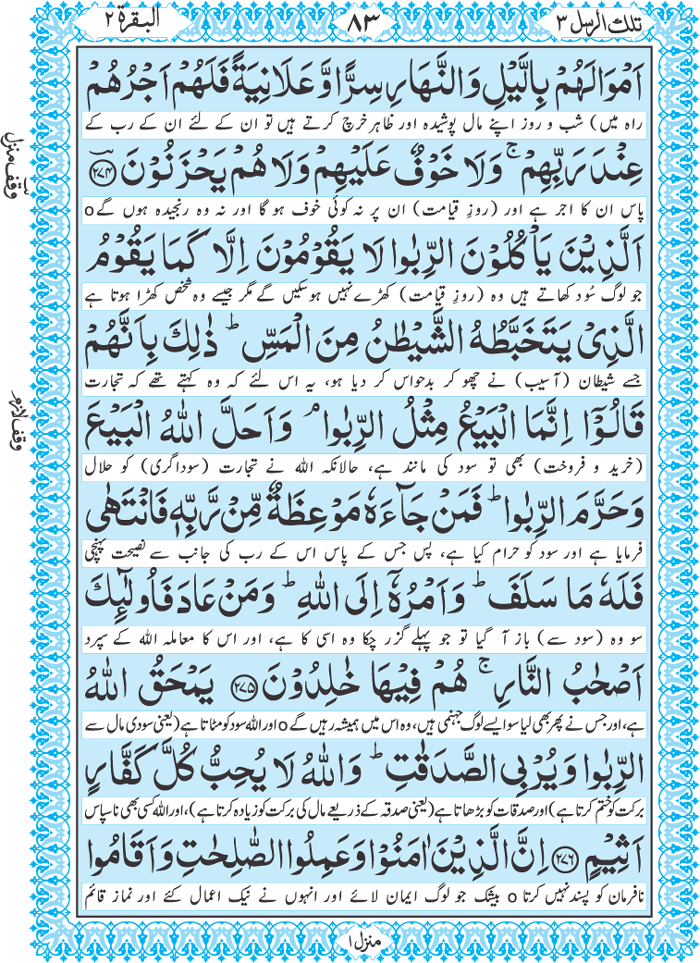 تلك الرسل ٣
٨٣
البقرة ٢
اَمْوَالَهُمْ بِالَّيْلِ وَالنَّهَارِ سِرًّا وَّعَلَانِيَةً فَلَهُمْ اَجْرُهُمْ
راہ میں) شب و روز اپنے مال پوشیدہ اور ظاہر خرچ کرتے ہیں تو ان کے لئے ان کے رب کے
عِنْدَ رَبِّهِمْ ۚ وَلَا خَوْفٌ عَلَيْهِمْ وَلَا هُمْ يَحْزَنُوْنَ ﴿٢٧٤﴾
پاس ان کا اجر ہے اور (روزِ قیامت) ان پر نہ کوئی خوف ہو گا اور نہ وہ رنجیدہ ہوں گے o
وقف منزل
اَلَّذِيْنَ يَاْكُلُوْنَ الرِّبٰوا لَا يَقُوْمُوْنَ اِلَّا كَمَا يَقُوْمُ
جو لوگ سُود کھاتے ہیں وہ (روزِ قیامت) کھڑے نہیں ہو سکیں گے مگر جیسے وہ شخص کھڑا ہوتا ہے
الَّذِيْ يَتَخَبَّطُهُ الشَّيْطٰنُ مِنَ الْمَسِّ ؕ ذٰلِكَ بِاَنَّهُمْ
جسے شیطان (آسیب) نے چھو کر بدحواس کر دیا ہو، یہ اس لئے کہ وہ کہتے تھے کہ تجارت
قَالُوْٓا اِنَّمَا الْبَيْعُ مِثْلُ الرِّبٰوا ۘ وَاَحَلَّ اللّٰهُ الْبَيْعَ
(خرید و فروخت) بھی تو سود کی مانند ہے، حالانکہ اللہ نے تجارت (سوداگری) کو حلال
وقف لازم
وَحَرَّمَ الرِّبٰوا ؕ فَمَنْ جَآءَهٗ مَوْعِظَةٌ مِّنْ رَّبِّهٖ فَانْتَهٰى
فرمایا ہے اور سود کو حرام کیا ہے، پس جس کے پاس اس کے رب کی جانب سے نصیحت پہنچی
فَلَهٗ مَا سَلَفَ ؕ وَاَمْرُهٗٓ اِلَى اللّٰهِ ؕ وَمَنْ عَادَ فَاُولٰٓئِكَ
سو وہ (سود سے) باز آ گیا تو جو پہلے گزر چکا وہ اسی کا ہے، اور اس کا معاملہ اللہ کے سپرد
اَصْحٰبُ النَّارِ ۚ هُمْ فِيْهَا خٰلِدُوْنَ ﴿٢٧٥﴾ يَمْحَقُ اللّٰهُ
ہے، اور جس نے پھر بھی لیا سو ایسے لوگ جہنمی ہیں، وہ اس میں ہمیشہ رہیں گے o اور اللہ سود کو مٹاتا ہے (یعنی سودی مال سے
الرِّبٰوا وَيُرْبِي الصَّدَقٰتِ ؕ وَاللّٰهُ لَا يُحِبُّ كُلَّ كَفَّارٍ
برکت کو ختم کرتا ہے) اور صدقات کو بڑھاتا ہے (یعنی صدقہ کے ذریعے مال کی برکت کو زیادہ کرتا ہے)، اور اللہ کسی بھی ناسپاس
اَثِيْمٍ ﴿٢٧٦﴾ اِنَّ الَّذِيْنَ اٰمَنُوْا وَعَمِلُوا الصّٰلِحٰتِ وَاَقَامُوا
نافرمان کو پسند نہیں کرتا o بیشک جو لوگ ایمان لائے اور انہوں نے نیک اعمال کئے اور نماز قائم
منزل ١